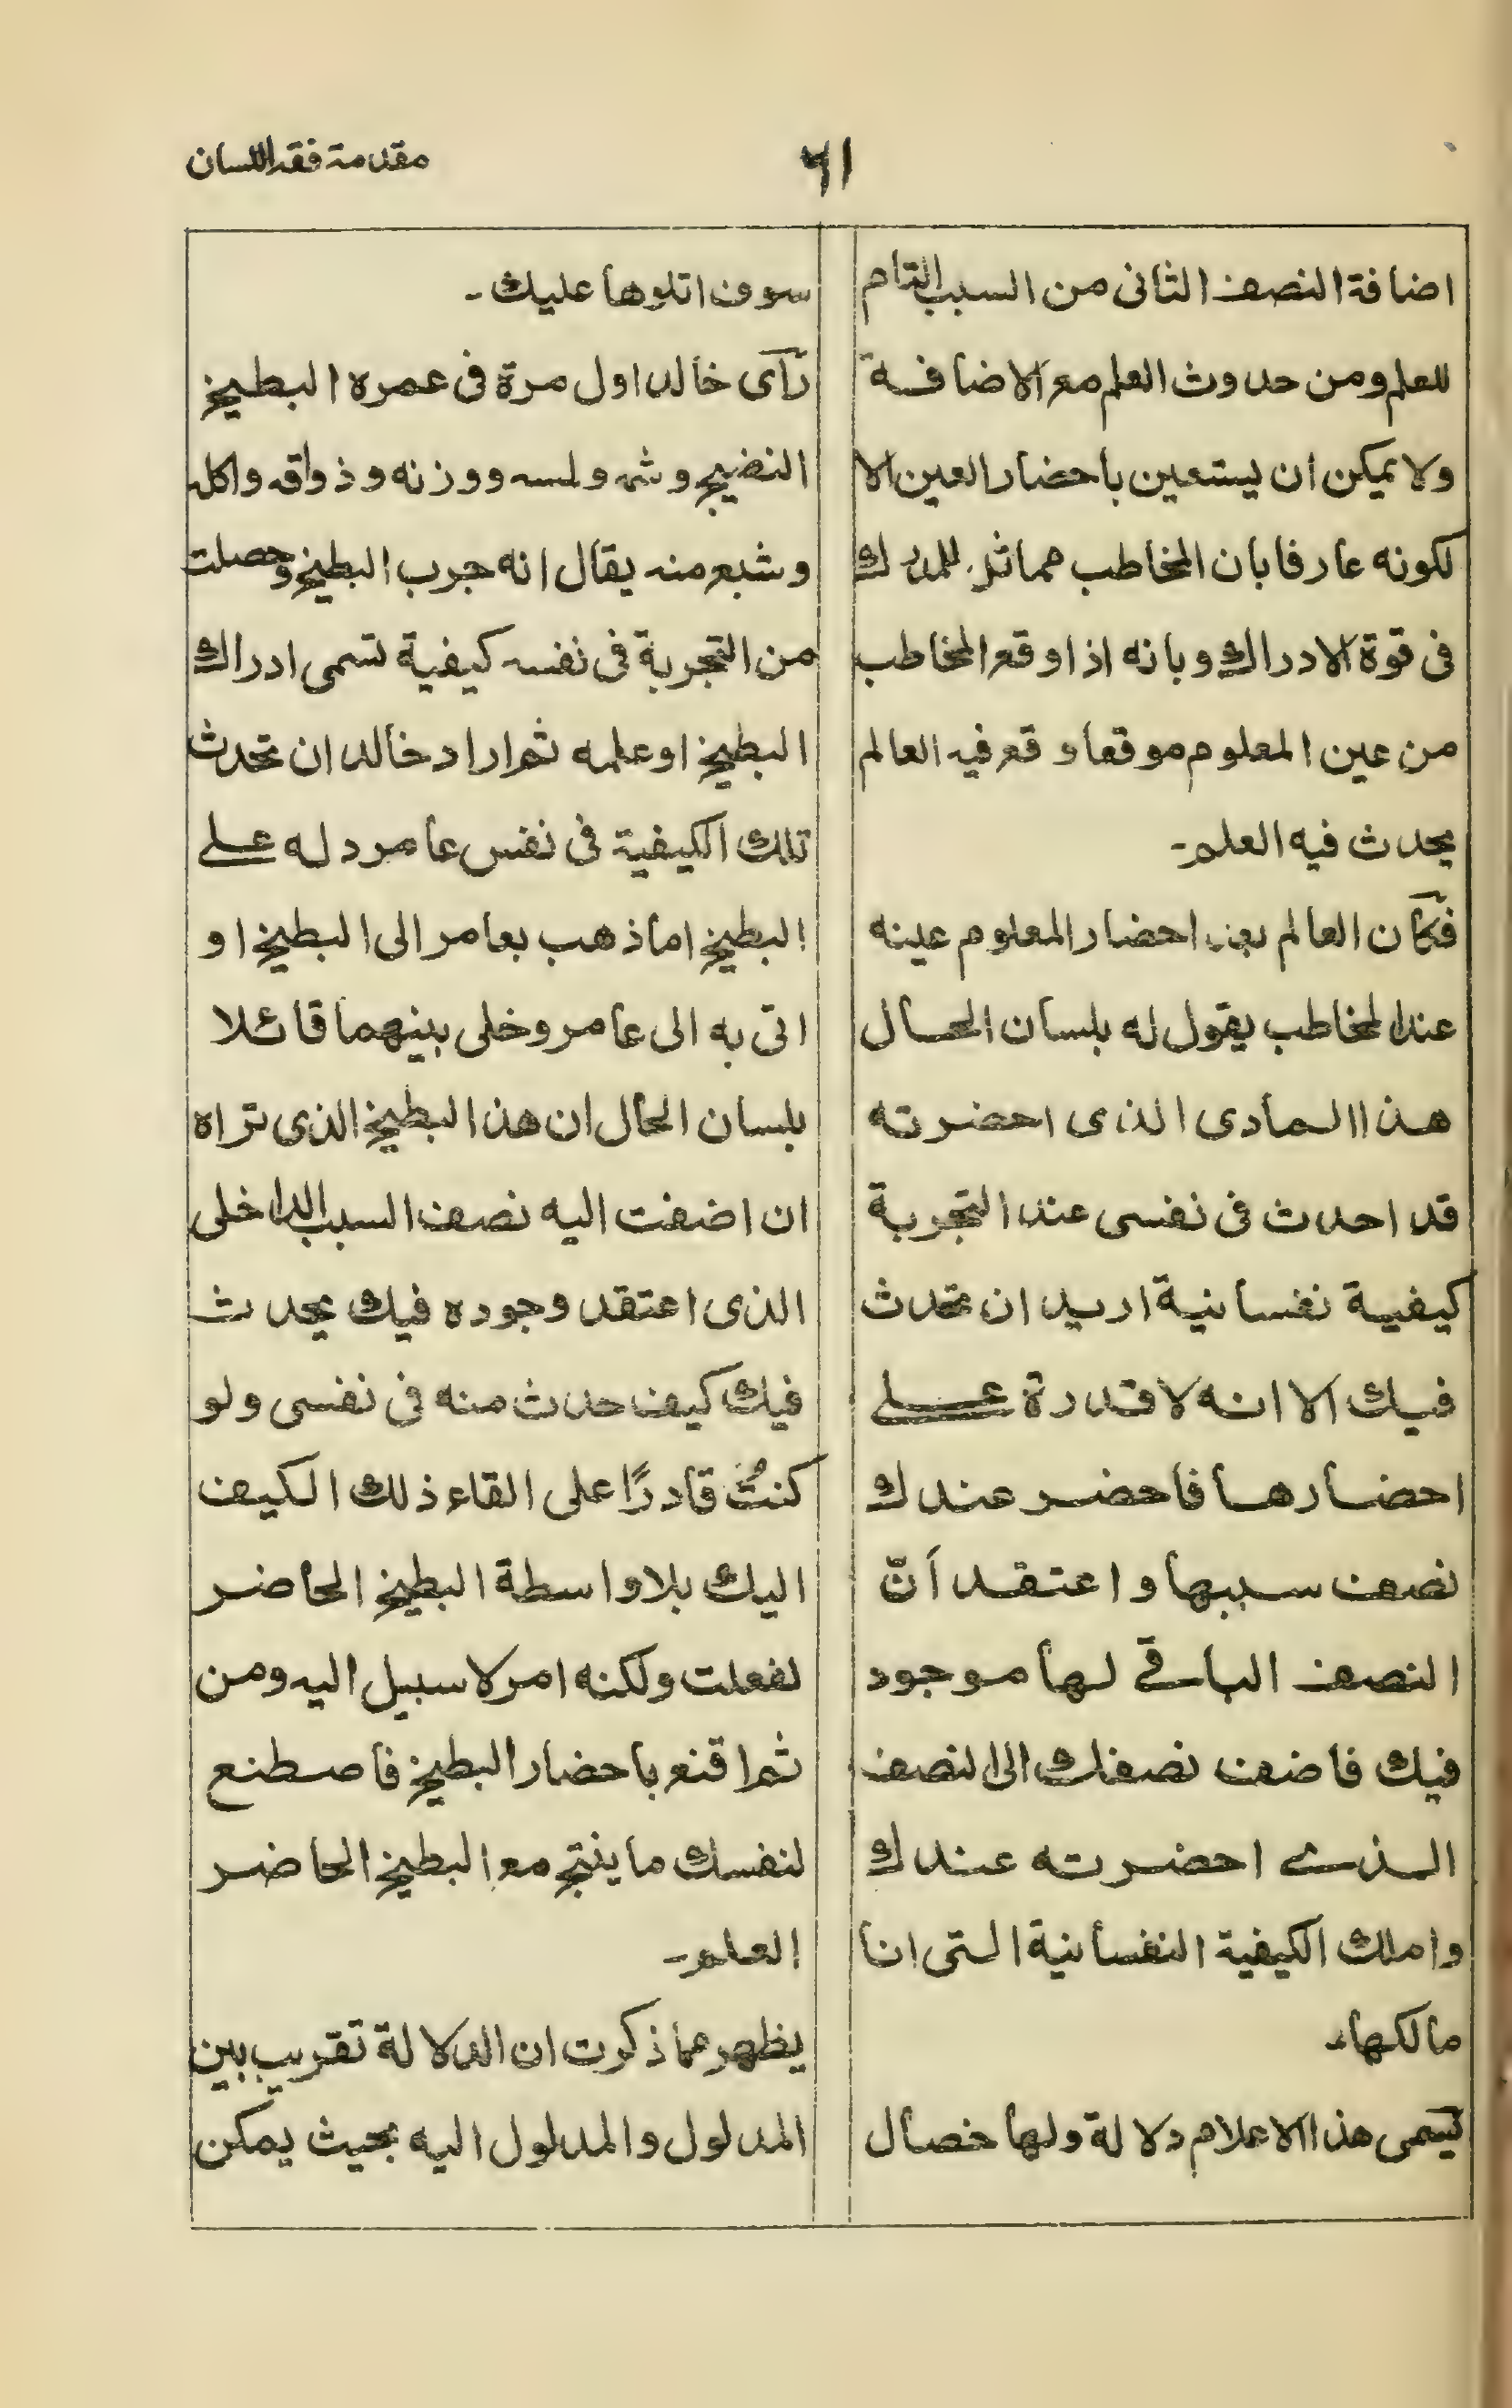 مقدمة فقه اللسان
٦١
اضافة النصف الثانى من السبب التام
للعلم ومن حدوث العلم مع الاضافة
ولا يمكن ان يستعين باحضار العين الا
لكونه عارفا بان المخاطب مماثل للمدرك
فى قوة الادراك وبانه اذا وقع المخاطب
من عين المعلوم موقعا وقع فيه العالم
يحدث فيه العلم۔
فكان العالم بعد احضار المعلوم عينه
عند المخاطب يقول له بلسان الحال
هذا المادى الذى احضرته
قد احدث فى نفسى عند التجربة
كيفية نفسانية اريد ان تحدث
فيك الا انه لا قدرة على
احضارها فاحضر عندك
نصف سببها واعتقد اَنّ
النصف الباقے لها موجود
فيك فاضف نصفك الى النصف
الذے احضرته عندك
واملك الكيفية النفسانية التى انا
مالكها۔
يسمى هذا الاعلام دلالة ولها خصال
سوف اتلوها عليك۔
رآى خالد اول مرة فى عمره البطيخ
النضيج وشمه ولمسه ووزنه وذواقه واكله
وشبع منه يقال انه جرب البطيخ وحصلت
من التجربة فى نفسه كيفية تسمى ادراك
البطيخ او علمه ثم اراد خالد ان تحدث
تلك الكيفية فى نفس عامر دله على
البطيخ اما ذهب بعامر الى البطيخ او
اتى به الى عامر وخلى بينهما قائلا
بلسان الحال ان هذا البطيخ الذى تراه
ان اضفت اليه نصف السبب الداخلى
الذى اعتقد وجوده فيك يحدث
فيك كيف حدث منه فى نفسى ولو
كنتُ قادرًا على القاء ذلك الكيف
اليك بلا واسطة البطيخ الحاضر
لفعلت ولكنه امر لا سبيل اليه ومن
ثم اقنع باحضار البطيخ فاصطنع
لنفسك ما ينتج مع البطيخ الحاضر
العلم۔
يظهر مما ذكرت ان الدلالة تقريب بين
المدلول والمدلول اليه بحيث يمكن